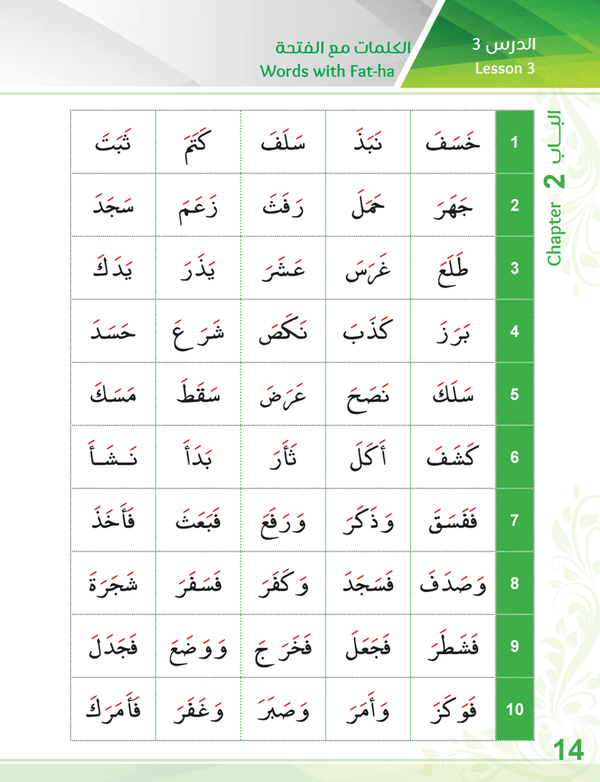 الدرس 3
Lesson 3
الكلمات مع الفتحة
Words with Fat-ha
الباب
Chapter 2
1 خَسَفَ نَبَذَ سَلَفَ كَتَمَ ثَبَتَ
2 جَهَرَ حَمَلَ رَفَثَ زَعَمَ سَجَدَ
3 طَلَعَ غَرَسَ عَشَرَ يَذَرَ يَدَكَ
4 بَرَزَ كَذَبَ نَكَصَ شَرَعَ حَسَدَ
5 سَلَكَ نَصَحَ عَرَضَ سَقَطَ مَسَكَ
6 كَشَفَ أَكَلَ ثَأَرَ بَدَأَ نَشَأَ
7 فَفَسَقَ وَذَكَرَ وَرَفَعَ فَبَعَثَ فَأَخَذَ
8 وَصَدَفَ فَسَجَدَ وَكَفَرَ فَسَفَرَ شَجَرَةَ
9 فَشَطَرَ فَجَعَلَ فَخَرَجَ وَوَضَعَ فَجَدَلَ
10 فَوَكَزَ وَأَمَرَ وَصَبَرَ وَغَفَرَ فَأَمَرَكَ
14